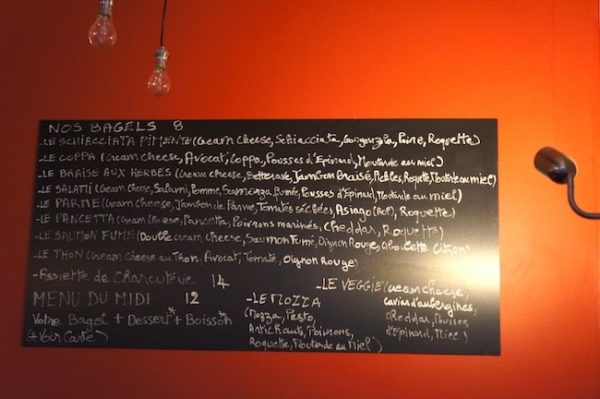 NOS BAGELS 8
-LE SCHIACCIATA PIMENTÉ (Cream Cheese, Schiacciata, Gorgonzola, Poire, Roquette)
-LE COPPA (Cream cheese, Avocat, Coppa, Pousses d'Epinard, Moutarde au miel)
-LE BRAISÉ AUX HERBES (Cream cheese, Betterave, Jambon Braisé, Pickles, Roquette, Moutarde au miel)
-LE SALATTI (Cream Cheese, Salami, Pomme, Scamorza Fumée, Pousses d'Epinard, Moutarde au miel)
-LE PARME (Cream Cheese, Jambon de Parme, Tomates séchées, Asiago (AOP), Roquette)
-LE PANCETTA (Cream Cheese, Pancetta, Poivrons marinés, Cheddar, Roquette)
-LE SAUMON FUMÉ (Double Cream Cheese, Saumon Fumé, Oignon Rouge, Ciboulette, Citron)
-LE THON (Cream Cheese au Thon, Avocat, Tomate, Oignon Rouge)
-Assiette de Charcuterie 14
MENU DU MIDI 12
Votre Bagel + Dessert* + Boisson*
(*Voir Carte)
-LE MOZZA
(Mozza, Pesto,
Artichauts, Poivrons,
Roquette, Moutarde au Miel)
-LE VEGGIE (Cream cheese,
Caviar d'aubergines,
Cheddar, Pousses
d'Epinard, Miel)